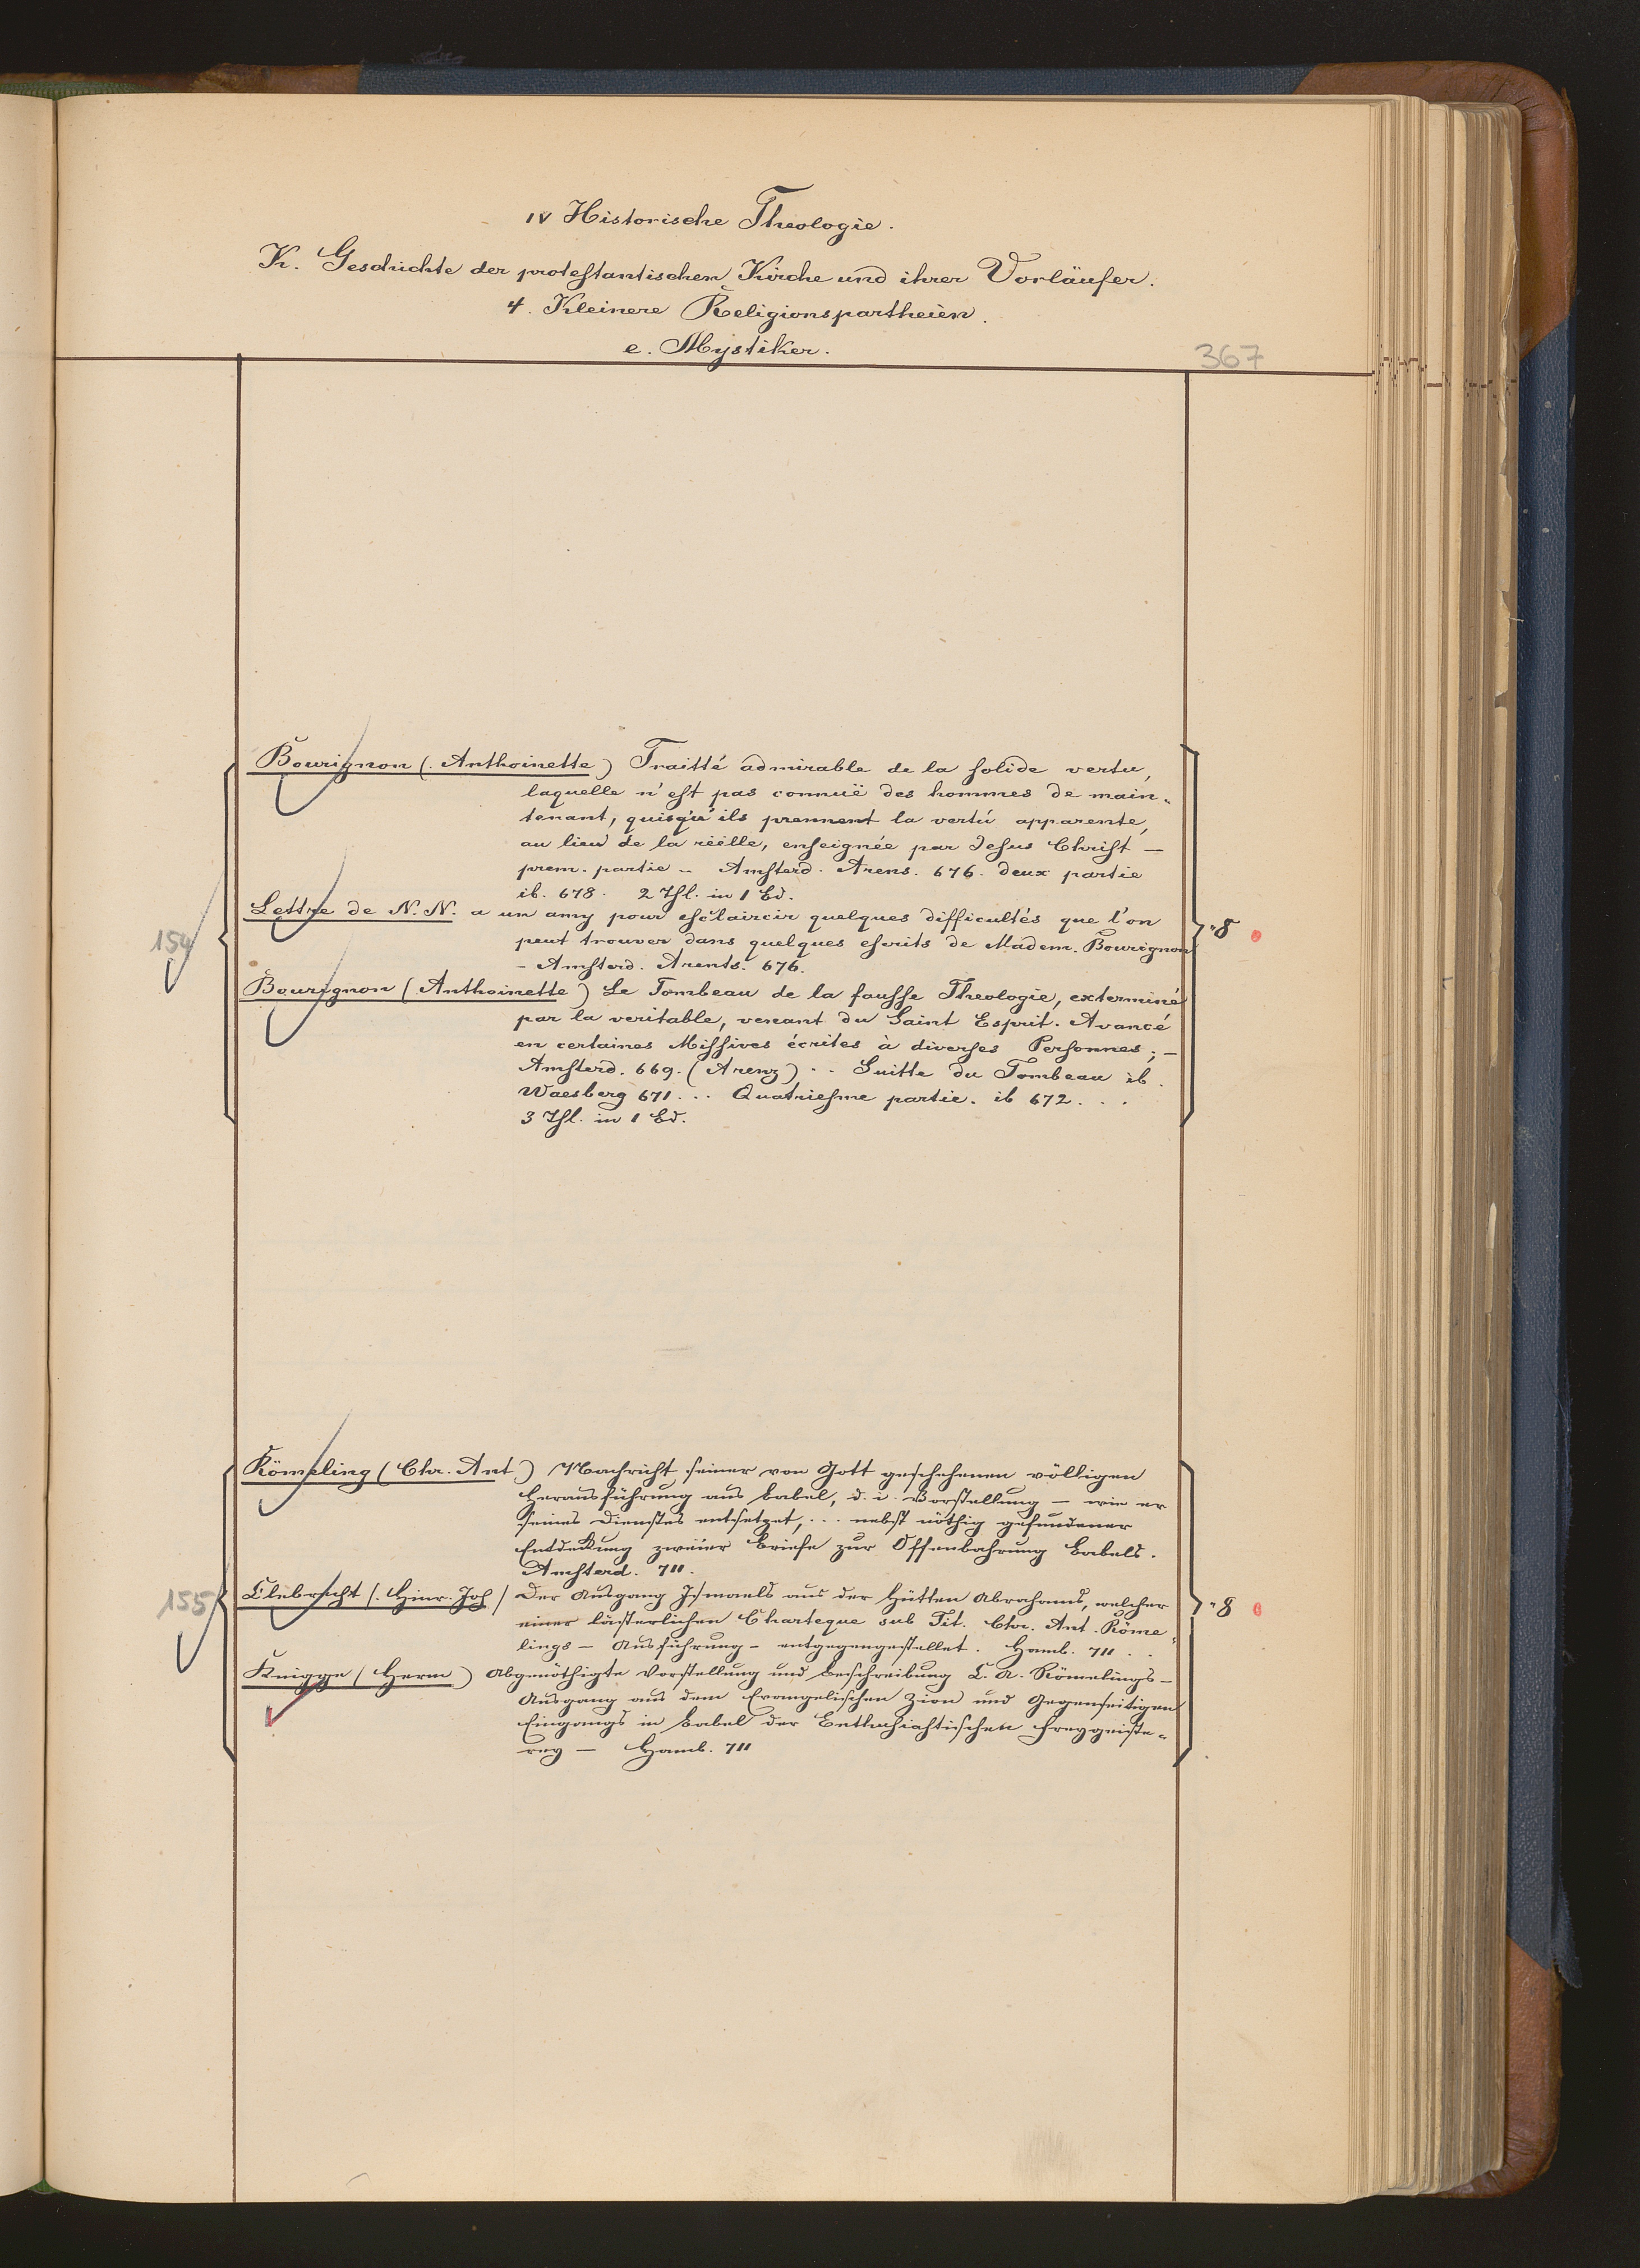 IV Historische Theologie.
K. Geschichte der protestantischen Kirche und ihrer Vorläufer.
4. Kleinere Religionspartheien.
e. Mystiker.
367
Bourignon (Anthoinette) Traitté admirable de la solide vertu,
laquelle n'est pas connuë des hommes de main-
tenant, quisqu'ils prennent la vertú apparente,
au lieu de la réelle, enseignée par Jesus Christ —
prem. partie - Amsterd. Arens. 676. deux partie
ib. 678. 2 Thl. in 1 Bd.
Lettre de N. N. a un amy pour esclaircir quelques difficultés que l'on
peut trouver dans quelques escrits de Madem. Bourignon
- Amsterd. Arents. 676.
154
"8
Bourignon (Anthoinette) Le Tombeau de la fausse Theologie, exterminé
par la veritable, venant du Saint Esprit. Avancé
en certaines Missives écrites à diverses Personnes; —
Amsterd. 669. (Arenz) . . Suitte du Tombeau ib.
Waesberg 671 . . . Quatriesme partie. ib 672 . . .
3 Thl. in 1 Bd.
Römeling (Chr. Ant.) Nachricht seiner von Gott geschehenen völligen
Herausführung aus Babel, d. i. Vorstellung — wie er
seines Dienstes entsetzet, . . . nebst nöthig gefundener
Entdekung zweier Briefe zur Offenbahrung Babels.
Amsterd. 711.
155
"8
Elebrecht (Hinr. Joh) Der Ausgang Ismaels aus der Hütten Abrahams, welcher
einer lästerlichen Charteque sub Tit. Chr. Ant. Röme-
lings — Ausführung — entgegengestellet. Hamb. 711 . .
Knigge (Herm) Abgenöthigte Vorstellung und Beschreibung C. A. Römelings —
Ausgang aus dem Evangelischen Zion und Gegenseitigen
Eingangs in Babel der Enthusiastischen Freygeiste-
rey — Hamb. 711